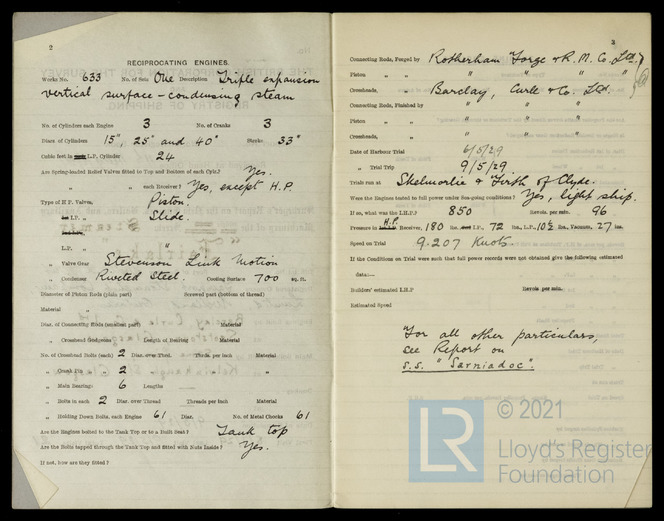 2
RECIPROCATING ENGINES.
Works No. 633 No. of Sets One Description Triple expansion
vertical surface-condensing steam
No. of Cylinders each Engine 3 No. of Cranks 3
Diars. of Cylinders 15", 25" and 40" Stroke 33"
Cubic feet in each L.P. Cylinder 24
Are Spring-loaded Relief Valves fitted to Top and Bottom of each Cylr.? Yes.
" " " each Receiver? Yes, except H.P.
Type of H.P. Valves, Piston.
" 1st I.P. " Slide.
" 2nd I.P. "
" L.P. " "
" Valve Gear Stevenson Link Motion
" Condenser Riveted Steel. Cooling Surface 700 sq. ft.
Diameter of Piston Rods (plain part) Screwed part (bottom of thread)
Material "
Diar. of Connecting Rods (smallest part) Material
" Crosshead Gudgeons Length of Bearing Material
No. of Crosshead Bolts (each) 2 Diar. over Thrd. Thrds. per inch Material
" Crank Pin " " 2 " " "
" Main Bearings 6 Lengths
" Bolts in each 2 Diar. over Thread Threads per inch Material
" Holding Down Bolts, each Engine 61 Diar. No. of Metal Chocks 61
Are the Engines bolted to the Tank Top or to a Built Seat? Tank top
Are the Bolts tapped through the Tank Top and fitted with Nuts Inside? Yes.
If not, how are they fitted?
3
Connecting Rods, Forged by Rotherham Forge & R. M. Co. Ltd.
Piston " " " " " "
Crossheads, " Barclay, Curle & Co. Ltd.
Connecting Rods, Finished by " " "
Piston " " " " "
Crossheads, " " " "
Date of Harbour Trial 6/5/29
" Trial Trip 9/5/29
Trials run at Skelmorlie & Firth of Clyde.
Were the Engines tested to full power under Sea-going conditions? Yes, light ship.
If so, what was the I.H.P.? 850 Revols. per min. 96
Pressure in H.P. Receiver, 180 lbs. I.P. 72 lbs., L.P., 10½ lbs. Vacuum, 27 ins.
Speed on Trial 9.207 Knots.
If the Conditions on Trial were such that full power records were not obtained give the following estimated
data:—
Builders' estimated I.H.P. Revols per min.
Estimated Speed
"For all other particulars,
see Report on
S.S. "Sarniadoc".
© 2021
LR Lloyd's Register
Foundation